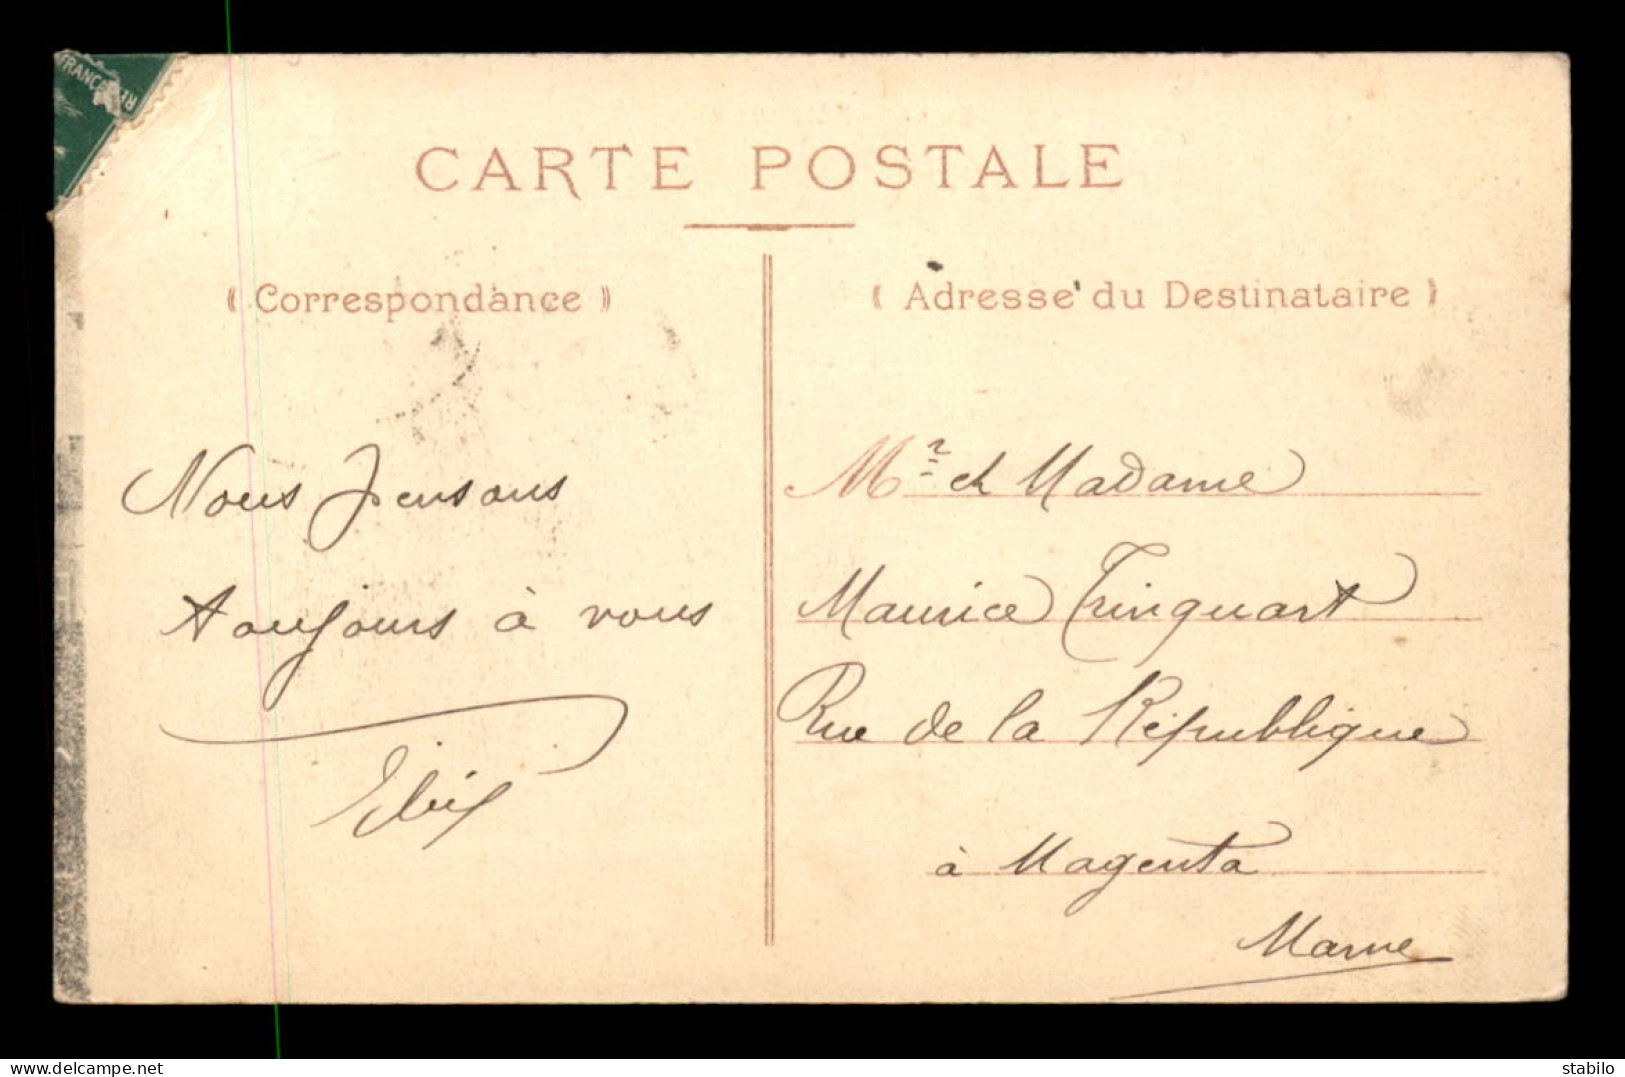 CARTE POSTALE
« Correspondance »
Nous pensons
toujours à vous
( Adresse du Destinataire )
Mr et Madame
Maurice Trinquart
Rue de la République
à Magenta
Marne
www.delcampe.net
stabilo